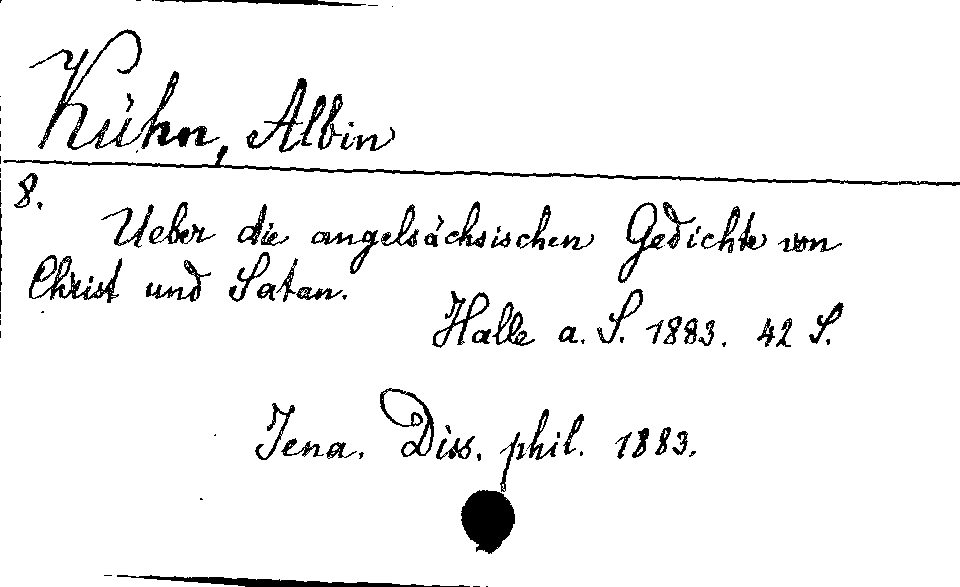 Kühn, Albin
8.
Ueber die angelsächsischen Gedichte von
Christ und Satan.
Halle a. S. 1883. 42 S.
Jena. Diss. phil. 1883.